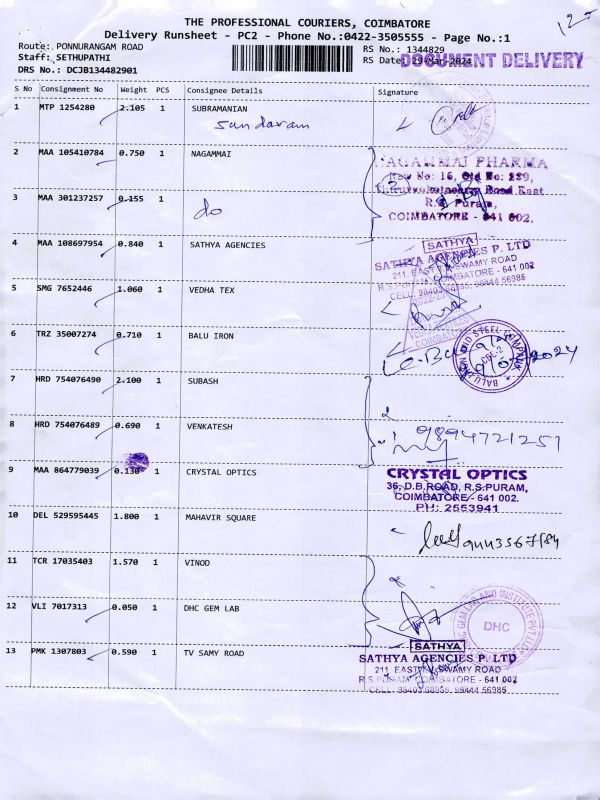 THE PROFESSIONAL COURIERS, COIMBATORE
Delivery Runsheet - PC2 - Phone No.:0422-3505555 - Page No.:1
Route: PONNURANGAM ROAD
Staff: SETHUPATHI
DRS No.: DCJB134482901
RS No.: 1344829
RS Date: 29-Mar-2024
DOCUMENT DELIVERY
S No Consignment No Weight PCS Consignee Details Signature
1 MTP 1254280 2.105 1 SUBRAMANIAN
Sundaram
2 MAA 105410784 0.750 1 NAGAMMAI
NAGAMMAI PHARMA
New No: 16, Old No: 239,
Road East
R.S. Puram,
COIMBATORE - 641 002.
3 MAA 301237257 0.155 1
do
4 MAA 108697954 0.840 1 SATHYA AGENCIES
SATHYA
SATHYA AGENCIES P. LTD
211, EAST T.V. SWAMY ROAD
R.S. PURAM, COIMBATORE - 641 002
CELL: 98403 68955, 98444 56985
5 SMG 7652446 1.060 1 VEDHA TEX
COIMBATORE
6 TRZ 35007274 0.710 1 BALU IRON
BALU IRON AND STEEL COMPANY
CBE-2
7 HRD 754076490 2.100 1 SUBASH
8 HRD 754076489 0.690 1 VENKATESH
9894721251
9 MAA 864779039 0.130 1 CRYSTAL OPTICS
CRYSTAL OPTICS
36, D.B.ROAD, R.S.PURAM,
COIMBATORE - 641 002.
PH: 2553941
10 DEL 529595445 1.800 1 MAHAVIR SQUARE
11 TCR 17035403 1.570 1 VINOD
12 VLI 7017313 0.050 1 DHC GEM LAB
DHC
13 PMK 1307803 0.590 1 TV SAMY ROAD
SATHYA
SATHYA AGENCIES P. LTD
211, EAST T.V. SWAMY ROAD
R.S. PURAM, COIMBATORE - 641 002
CELL: 98403 68955, 98444 56985